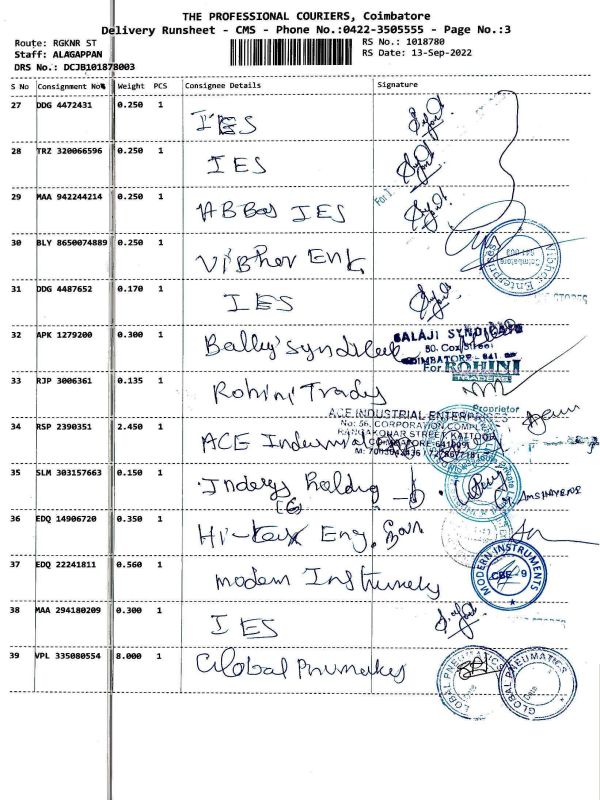 THE PROFESSIONAL COURIERS, Coimbatore
Delivery Runsheet - CMS - Phone No.:0422-3505555 - Page No.:3
Route: RGKNR ST
RS No.: 1018780
Staff: ALAGAPPAN
RS Date: 13-Sep-2022
DRS No.: DCJB101878003
S No Consignment No Weight PCS Consignee Details Signature
27 DDG 4472431 0.250 1 IES
28 TRZ 320066596 0.250 1 IES
29 MAA 942244214 0.250 1 ABBas IES
For
30 BLY 8650074889 0.250 1 Vibher Eng
Vibher Enterprises
Coimbatore
641 003
31 DDG 4487652 0.170 1 IES
32 APK 1279200 0.300 1 Syndicate
BALAJI SYNDICATE
80, Cox Street
COIMBATORE - 641 001
For ROHINI
33 RJP 3006361 0.135 1 Rohini
Proprietor
ACE INDUSTRIAL ENTERPRISES
No: 56, CORPORATION COMPLEX
STREET, KATTOOR
34 RSP 2390351 2.450 1 ACE
COIMBATORE-641009
35 SLM 303157663 0.150 1 holding
36 EDQ 14906720 0.350 1 Hi-tex Eng.
37 EDQ 22241811 0.560 1 modern
MODERN INSTRUMENTS
CBE - 9
38 MAA 294180209 0.300 1 IES
39 VPL 335080554 8.000 1 Global
GLOBAL PNEUMATICS
GLOBAL PNEUMATICS